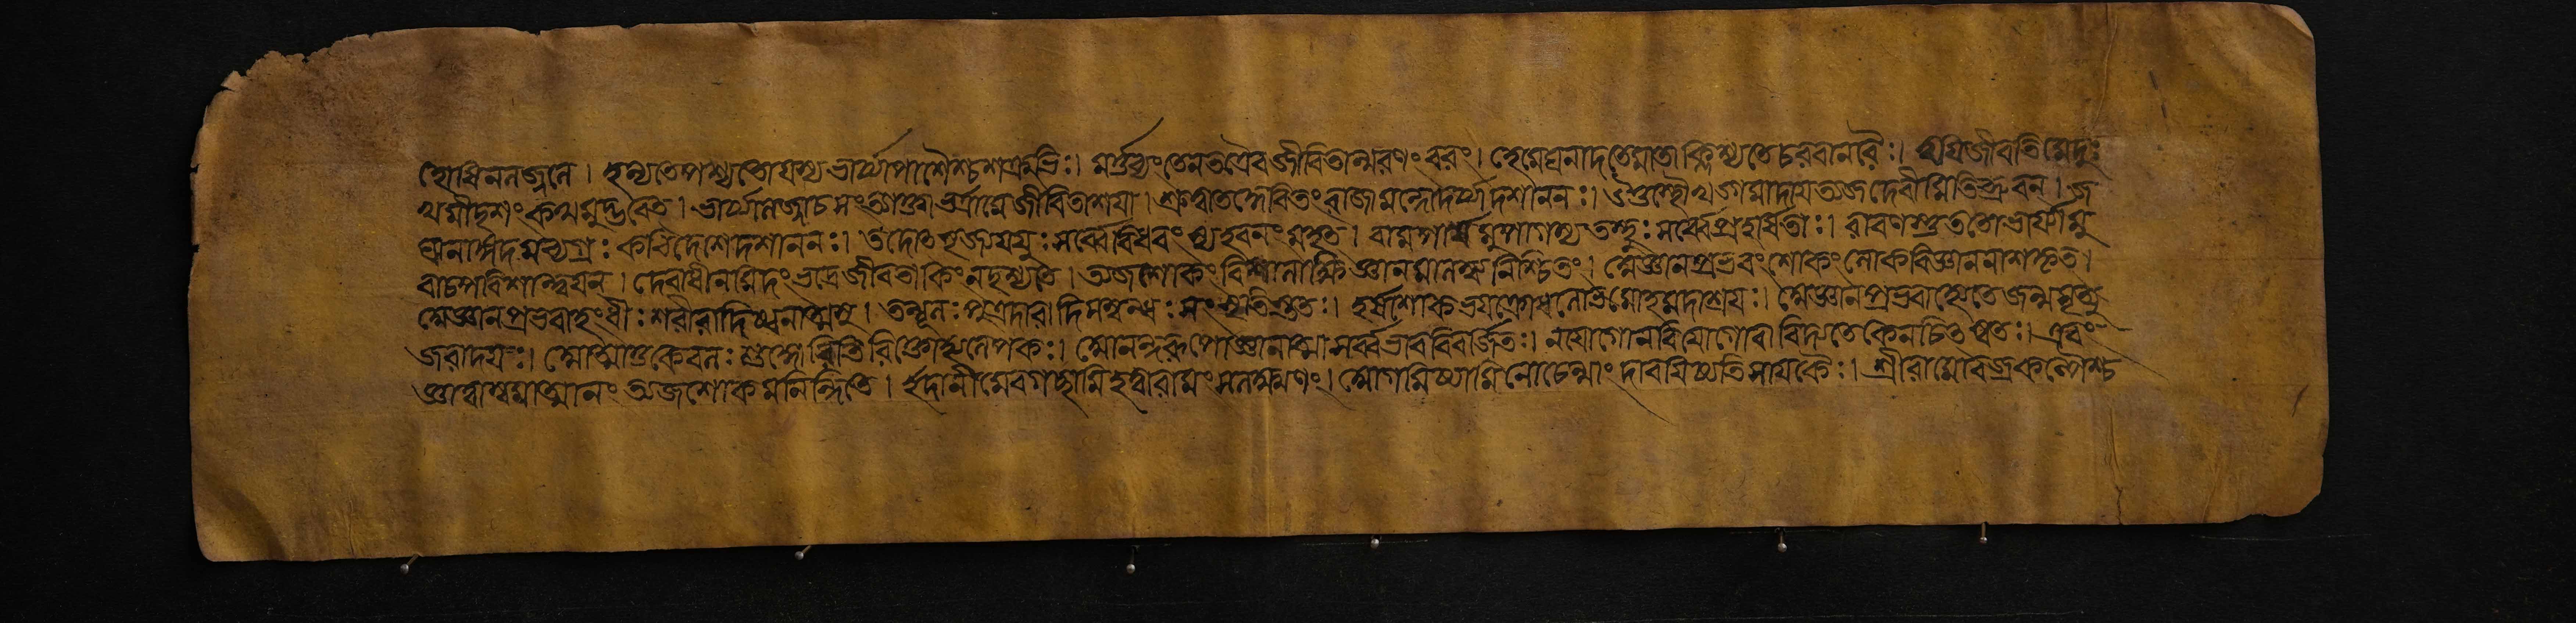 হোষিননজ্জনে । হন্যতেপশ্যতোযস্যভার্য্যাপাপৈশ্চশত্রুভিঃ। মর্ত্তব্যংতেনতত্রৈবজীবিতান্মরণংবরং। হেমেঘনাদতেমাতাক্লিশ্যতেচরবানরৈঃ। ত্বয়িজীবতিমেদুঃ
খমীদৃশংকথমুদ্ভবেত । ভার্য্যালজ্জাচসংত্যক্তাভর্ত্রামেজীবিতাশয়া । শ্রুত্বাতদ্দেবিতংরাজামন্দোদর্য্যাদশাননঃ। উত্তস্থৌখড্গমাদায়ত্যজদেবীমিতিব্রুবন । জ
ঘানাঙ্গদমব্যগ্রঃ কটিদেশেদশাননঃ। তদোত্সৃজ্যযযুঃসর্ব্বেবিধ্বংস্যহবনংমহত । রামপার্শ্বমুপাগম্যতস্থুঃসর্ব্বেপ্রহর্ষিতাঃ। রাবণস্তুততোভার্য্যামু
বাচপরিশান্ত্বয়ন । দেবাধীনমিদংভদ্রেজীবতাকিংনদৃশ্যতে । ত্যজশোকংবিশালাক্ষিজ্ঞানমালম্ব্যনিশ্চিতং। অজ্ঞানপ্রভবংশোকংশোকবিজ্ঞাননাশকৃত।
অজ্ঞানপ্রভবাহংধীঃশরীরাদিষ্বনাত্মসু । তন্মূলঃপুত্রদারাদিসম্বন্ধঃসংসৃতিস্ততঃ। হর্ষশোকভয়ক্রোধলোভমোহমদাশ্রয়ঃ। অজ্ঞানপ্রভবাহ্যেতেজন্মমৃত্যু
জরাদয়ঃ। আত্মাতুকেবলঃশুদ্ধোব্যতিরিক্তোহ্যলেপকঃ। আনন্দরূপোজ্ঞানাত্মাসর্ব্বভাববিবর্জিতঃ। নযোগোনবিয়োগোবাবিদ্যতেকেনচিত্স্বতঃ। এবং
জ্ঞাত্বাস্বমাত্মানংত্যজশোকমনিন্দিতে । ইদানীমেবগচ্ছামিহত্বারামংসলক্ষ্মণং। আগমিষ্যামিনোচেন্মাংদারয়িষ্যতিসায়কৈঃ। শ্রীরামোবজ্রকল্পৈশ্চ